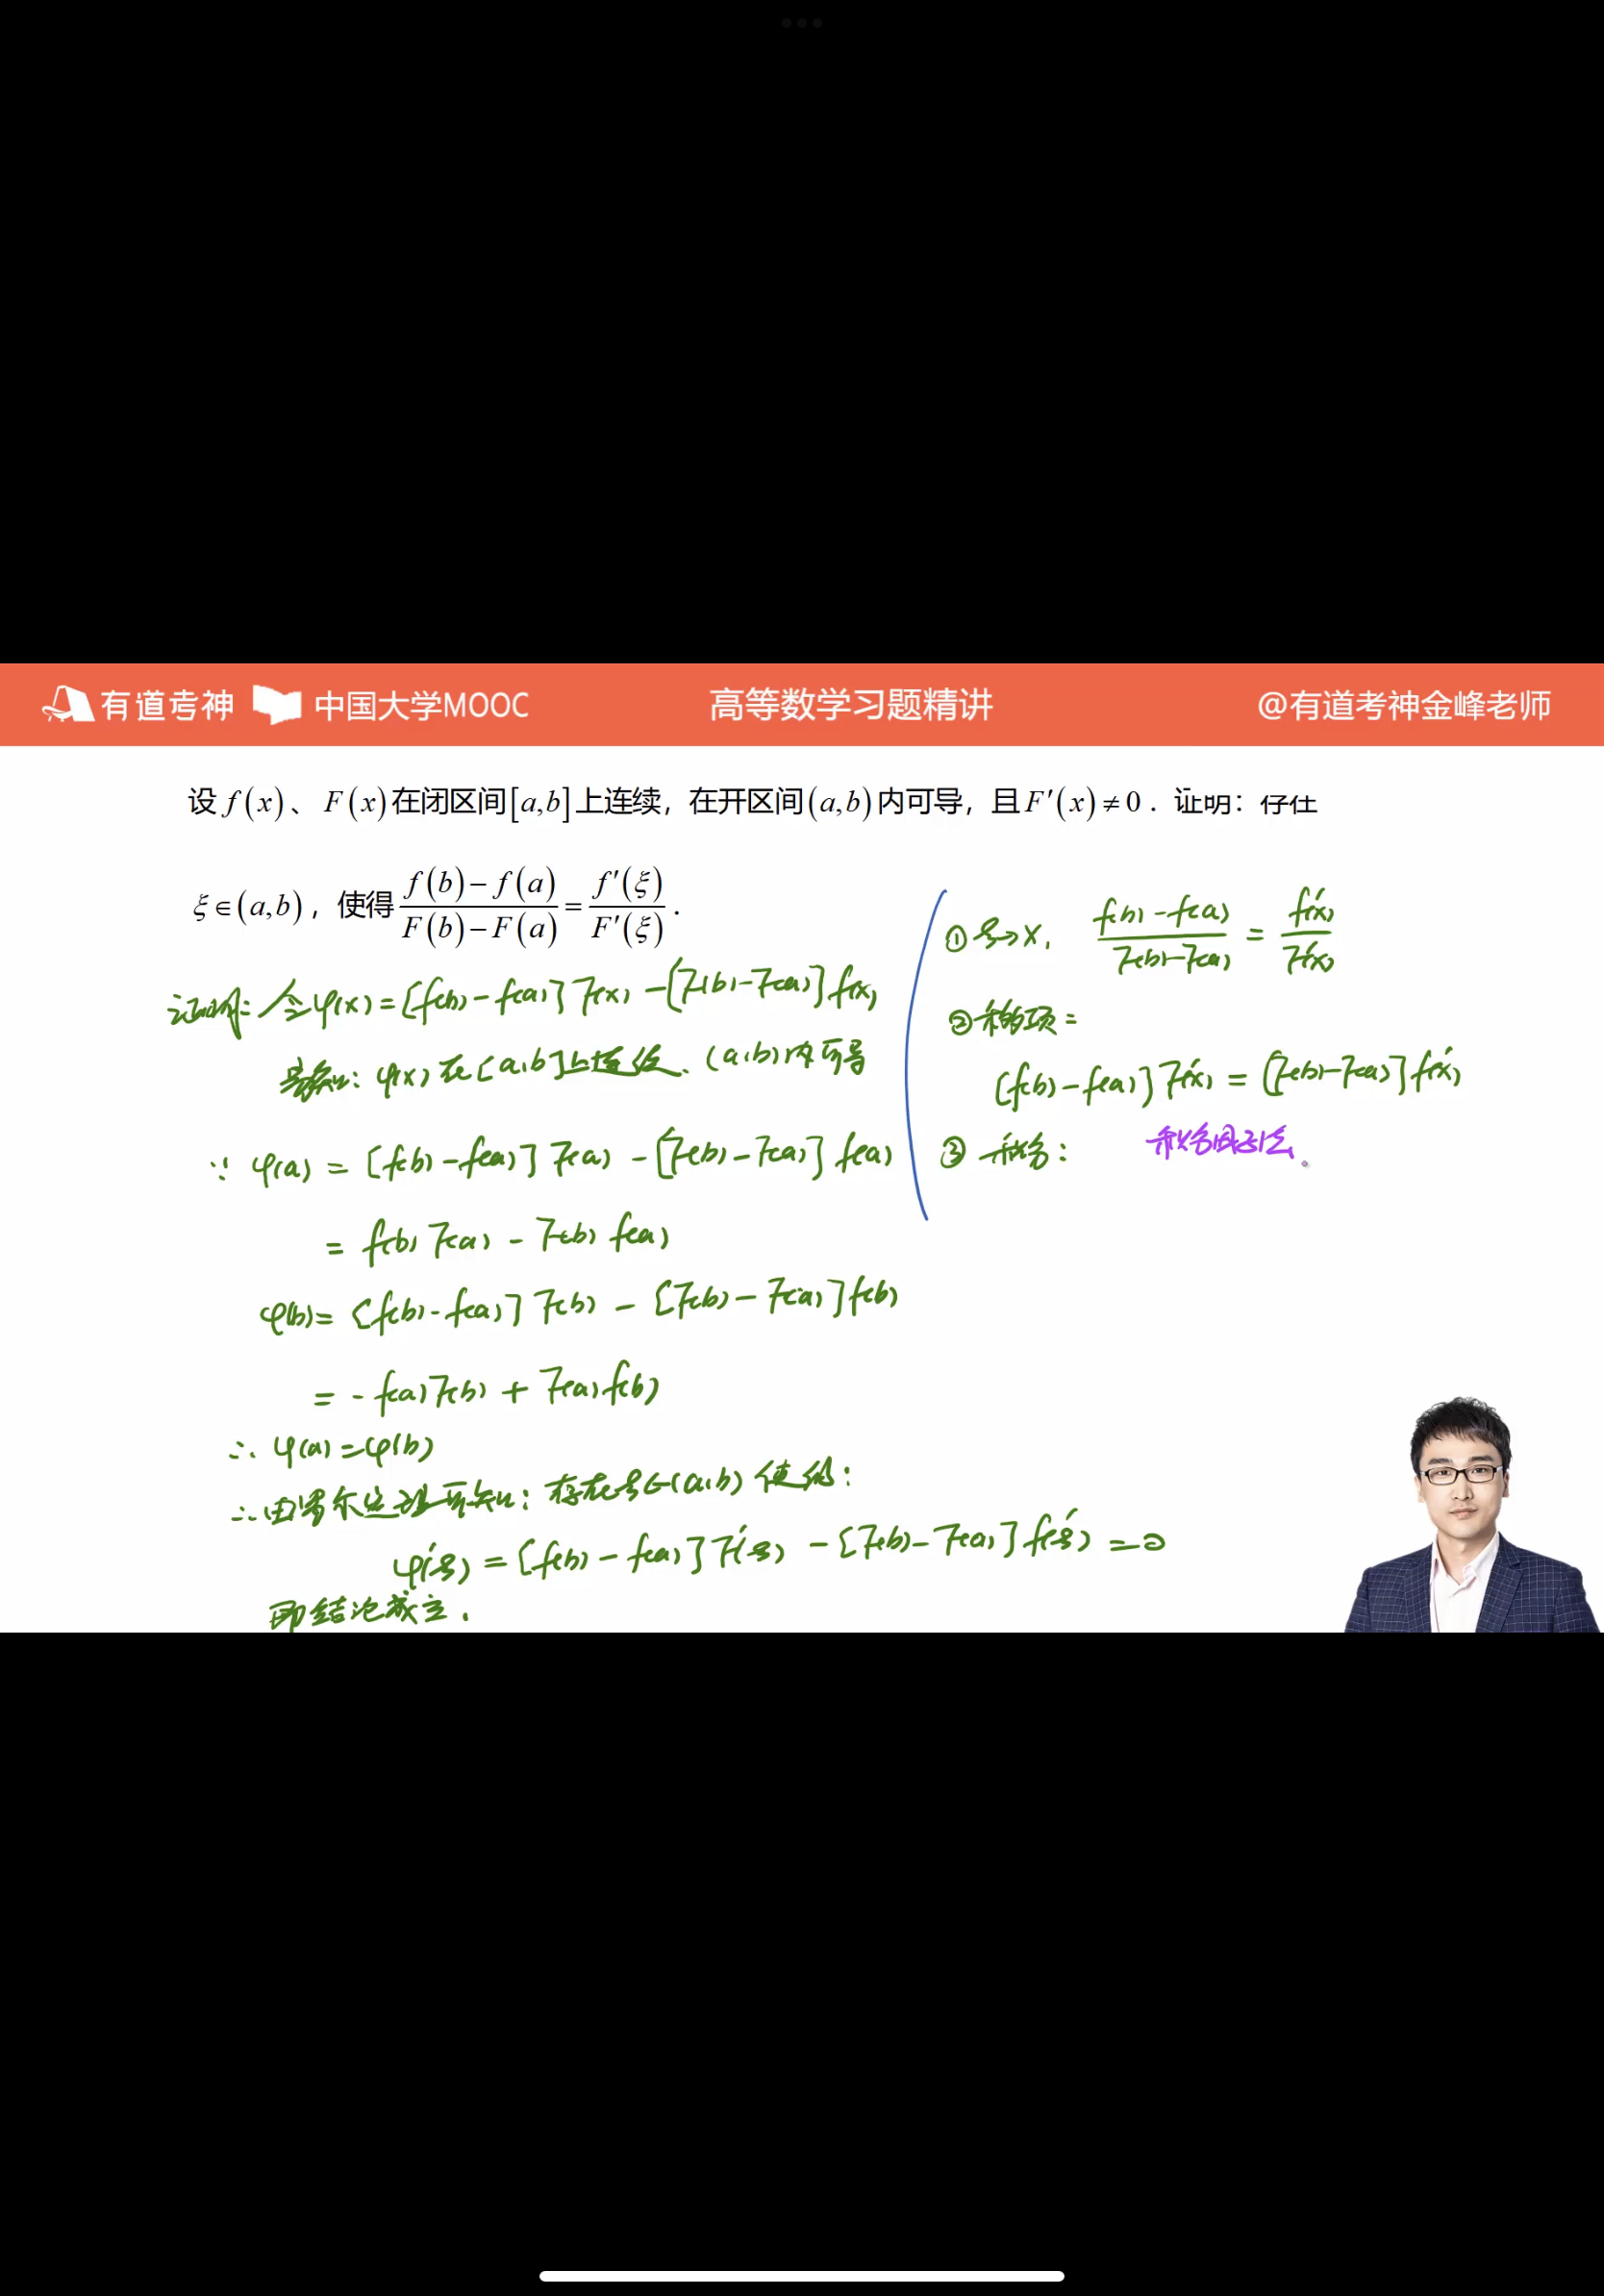 有道考神 中国大学MOOC 高等数学习题精讲 @有道考神金峰老师
设 f(x)、F(x)在闭区间[a,b]上连续，在开区间(a,b)内可导，且F′(x)≠0．证明：存在
ξ∈(a,b)，使得 (f(b)−f(a))/(F(b)−F(a)) = f′(ξ)/F′(ξ)．
证明：令φ(x)=[f(b)−f(a)]F(x)−[F(b)−F(a)]f(x)
易知：φ(x)在[a,b]上连续、(a,b)内可导
∵ φ(a) = [f(b)−f(a)]F(a)−[F(b)−F(a)]f(a)
= f(b)F(a) − F(b)f(a)
φ(b)= [f(b)−f(a)]F(b) − [F(b)−F(a)]f(b)
= −f(a)F(b) + F(a)f(b)
∴ φ(a)=φ(b)
∴由罗尔定理可知：存在ξ∈(a,b)使得：
φ′(ξ) = [f(b)−f(a)]F′(ξ) − [F(b)−F(a)]f′(ξ) = 0
即结论成立.
① ξ→x, (f(b)−f(a))/(F(b)−F(a)) = f′(x)/F′(x)
②移项：
[f(b)−f(a)]F′(x) = [F(b)−F(a)]f′(x)
③ 积分： 积分因子法